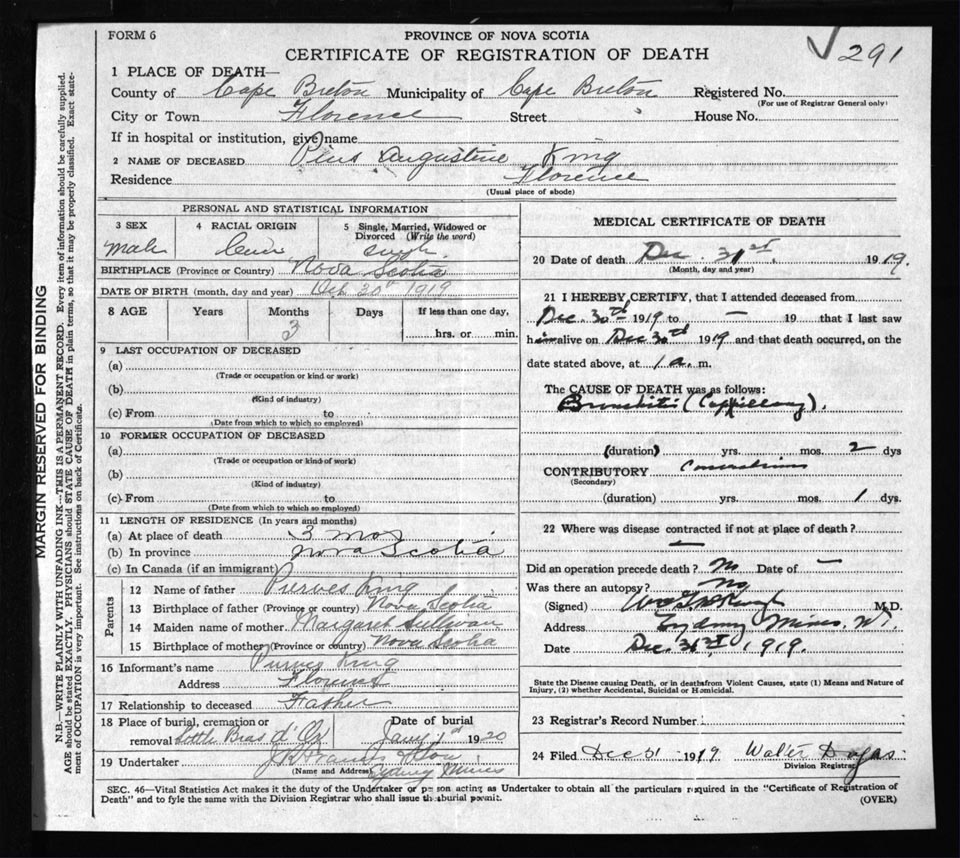 FORM 6
PROVINCE OF NOVA SCOTIA
CERTIFICATE OF REGISTRATION OF DEATH
291
1 PLACE OF DEATH—
County of Cape Breton Municipality of Cape Breton Registered No.
(For use of Registrar General only)
City or Town Florence Street House No.
If in hospital or institution, give name
2 NAME OF DECEASED Pius Augustine King
Residence Florence
(Usual place of abode)
PERSONAL AND STATISTICAL INFORMATION
3 SEX 4 RACIAL ORIGIN 5 Single, Married, Widowed or
Divorced (Write the word)
Male Single
BIRTHPLACE (Province or Country) Nova Scotia
DATE OF BIRTH (month, day and year) 1919
8 AGE Years Months Days If less than one day,
3 hrs. or min.
9 LAST OCCUPATION OF DECEASED
(a)
(Trade or occupation or kind or work)
(b)
(Kind of industry)
(c) From to
(Date from which to which so employed)
10 FORMER OCCUPATION OF DECEASED
(a)
(Trade or occupation or kind of work)
(b)
(Kind of industry)
(c) From to
(Date from which to which so employed)
11 LENGTH OF RESIDENCE (In years and months)
(a) At place of death 3 mos
(b) In province Nova Scotia
(c) In Canada (if an immigrant)
Parents
12 Name of father Purves King
13 Birthplace of father (Province or country) Nova Scotia
14 Maiden name of mother Margaret Sullivan
15 Birthplace of mother (Province or country) Nova Scotia
16 Informant's name Purves King
Address Florence
17 Relationship to deceased Father
18 Place of burial, cremation or Date of burial
removal Little Bras d'Or Jany 1st 1920
19 Undertaker
(Name and Address) Sydney Mines
MEDICAL CERTIFICATE OF DEATH
20 Date of death Dec. 31st 1919.
(Month, day and year)
21 I HEREBY CERTIFY, that I attended deceased from
Dec. 30th 1919 to — 19 that I last saw
him alive on Dec 30th 1919 and that death occurred, on the
date stated above, at 1 a. m.
The CAUSE OF DEATH was as follows:
Bronchitis (Cappillary).
(duration) yrs. mos. 2 dys
CONTRIBUTORY Convulsions
(Secondary)
(duration) yrs. mos. 1 dys.
22 Where was disease contracted if not at place of death?
—
Did an operation precede death? No Date of —
Was there an autopsy? No
(Signed) M.D.
Address Sydney Mines, N.S.
Date Dec. 31st, 1919.
State the Disease causing Death, or in deathsfrom Violent Causes, state (1) Means and Nature of
Injury, (2) whether Accidental, Suicidal or Homicidal.
23 Registrar's Record Number
24 Filed Dec 31 1919 Walter
Division Registrar
SEC. 46—Vital Statistics Act makes it the duty of the Undertaker or person acting as Undertaker to obtain all the particulars required in the "Certificate of Registration of
Death" and to fyle the same with the Division Registrar who shall issue the burial permit.
(OVER)
MARGIN RESERVED FOR BINDING
N.B.—WRITE PLAINLY WITH UNFADING INK—THIS IS A PERMANENT RECORD. Every item of information should be carefully supplied.
AGE should be stated EXACTLY. PHYSICIANS should STATE CAUSE OF DEATH in plain terms, so that it may be properly classified. Exact state-
ment of OCCUPATION is very important. See instructions on back of Certificate.